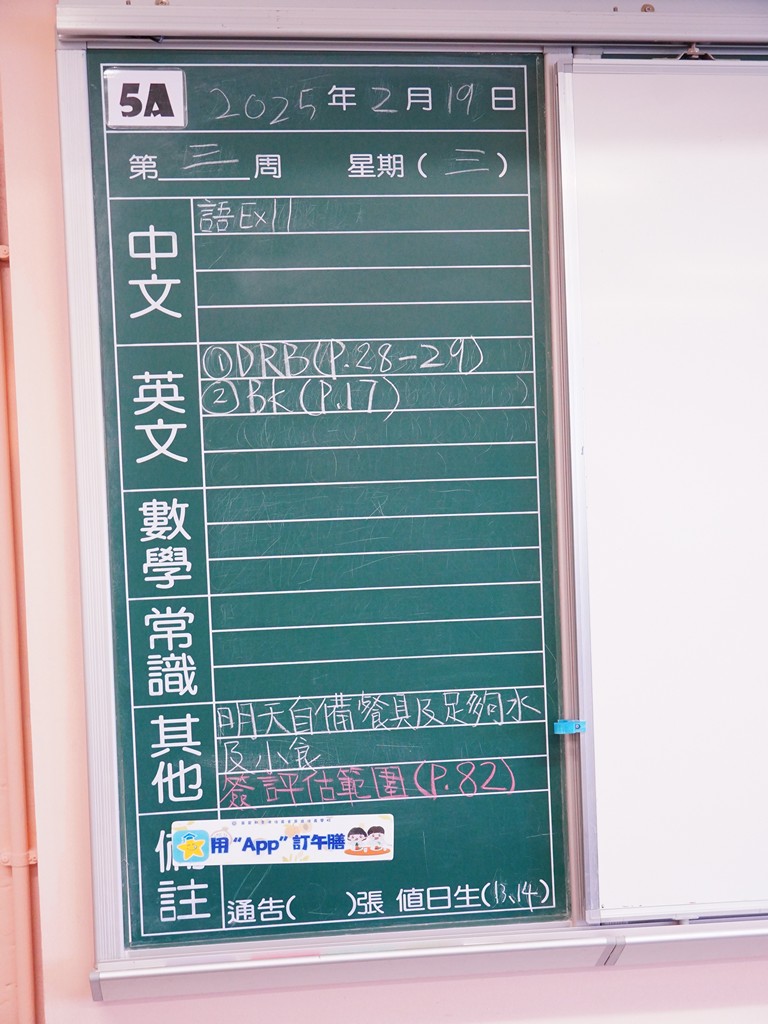 5A 2025年2月19日
第三周 星期(三)
中文
語Ex11
英文
①DRB(P.28-29)
②BK(P.17)
數學
常識
其他
明天自備餐具及足夠水
及小食
簽評估範圍(P.82)
備註
用“App”訂午膳
通告( )張 值日生(13、14)